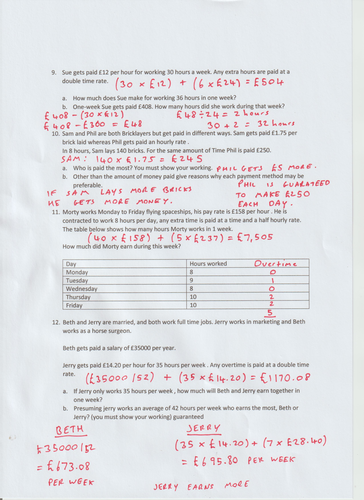 9. Sue gets paid £12 per hour for working 30 hours a week. Any extra hours are paid at a
double time rate. (30 x £12) + (6 x £24) = £504
a. How much does Sue make for working 36 hours in one week?
b. One-week Sue gets paid £408. How many hours did she work during that week?
£408 - (30 x £12) £48 ÷ 24 = 2 hours
£408 - £360 = £48 30 + 2 = 32 hours
10. Sam and Phil are both Bricklayers but get paid in different ways. Sam gets paid £1.75 per
brick laid whereas Phil gets paid an hourly rate.
In 8 hours, Sam lays 140 bricks. For the same amount of Time Phil is paid £250.
SAM: 140 x £1.75 = £245
a. Who is paid the most? You must show your working. PHIL GETS £5 MORE.
b. Other than the amount of money paid give reasons why each payment method may be
preferable. PHIL IS GUARATEED
IF SAM LAYS MORE BRICKS TO MAKE £250
HE GETS MORE MONEY. EACH DAY.
11. Morty works Monday to Friday flying spaceships, his pay rate is £158 per hour. He is
contracted to work 8 hours per day, any extra time is paid at a time and a half hourly rate.
The table below shows how many hours Morty works in 1 week.
(40 x £158) + (5 x £237) = £7,505
How much did Morty earn during this week?
Day Hours worked Overtime
Monday 8 0
Tuesday 9 1
Wednesday 8 0
Thursday 10 2
Friday 10 2
5
12. Beth and Jerry are married, and both work full time jobs. Jerry works in marketing and Beth
works as a horse surgeon.
Beth gets paid a salary of £35000 per year.
Jerry gets paid £14.20 per hour for 35 hours per week. Any overtime is paid at a double time
rate. (£35000/52) + (35 x £14.20) = £1170.08
a. If Jerry only works 35 hours per week, how much will Beth and Jerry earn together in
one week?
b. Presuming Jerry works an average of 42 hours per week who earns the most, Beth or
Jerry? (you must show your working) guaranteed
BETH JERRY
£35000/52 (35 x £14.20) + (7 x £28.40)
= £673.08 = £695.80 PER WEEK
PER WEEK
JERRY EARNS MORE